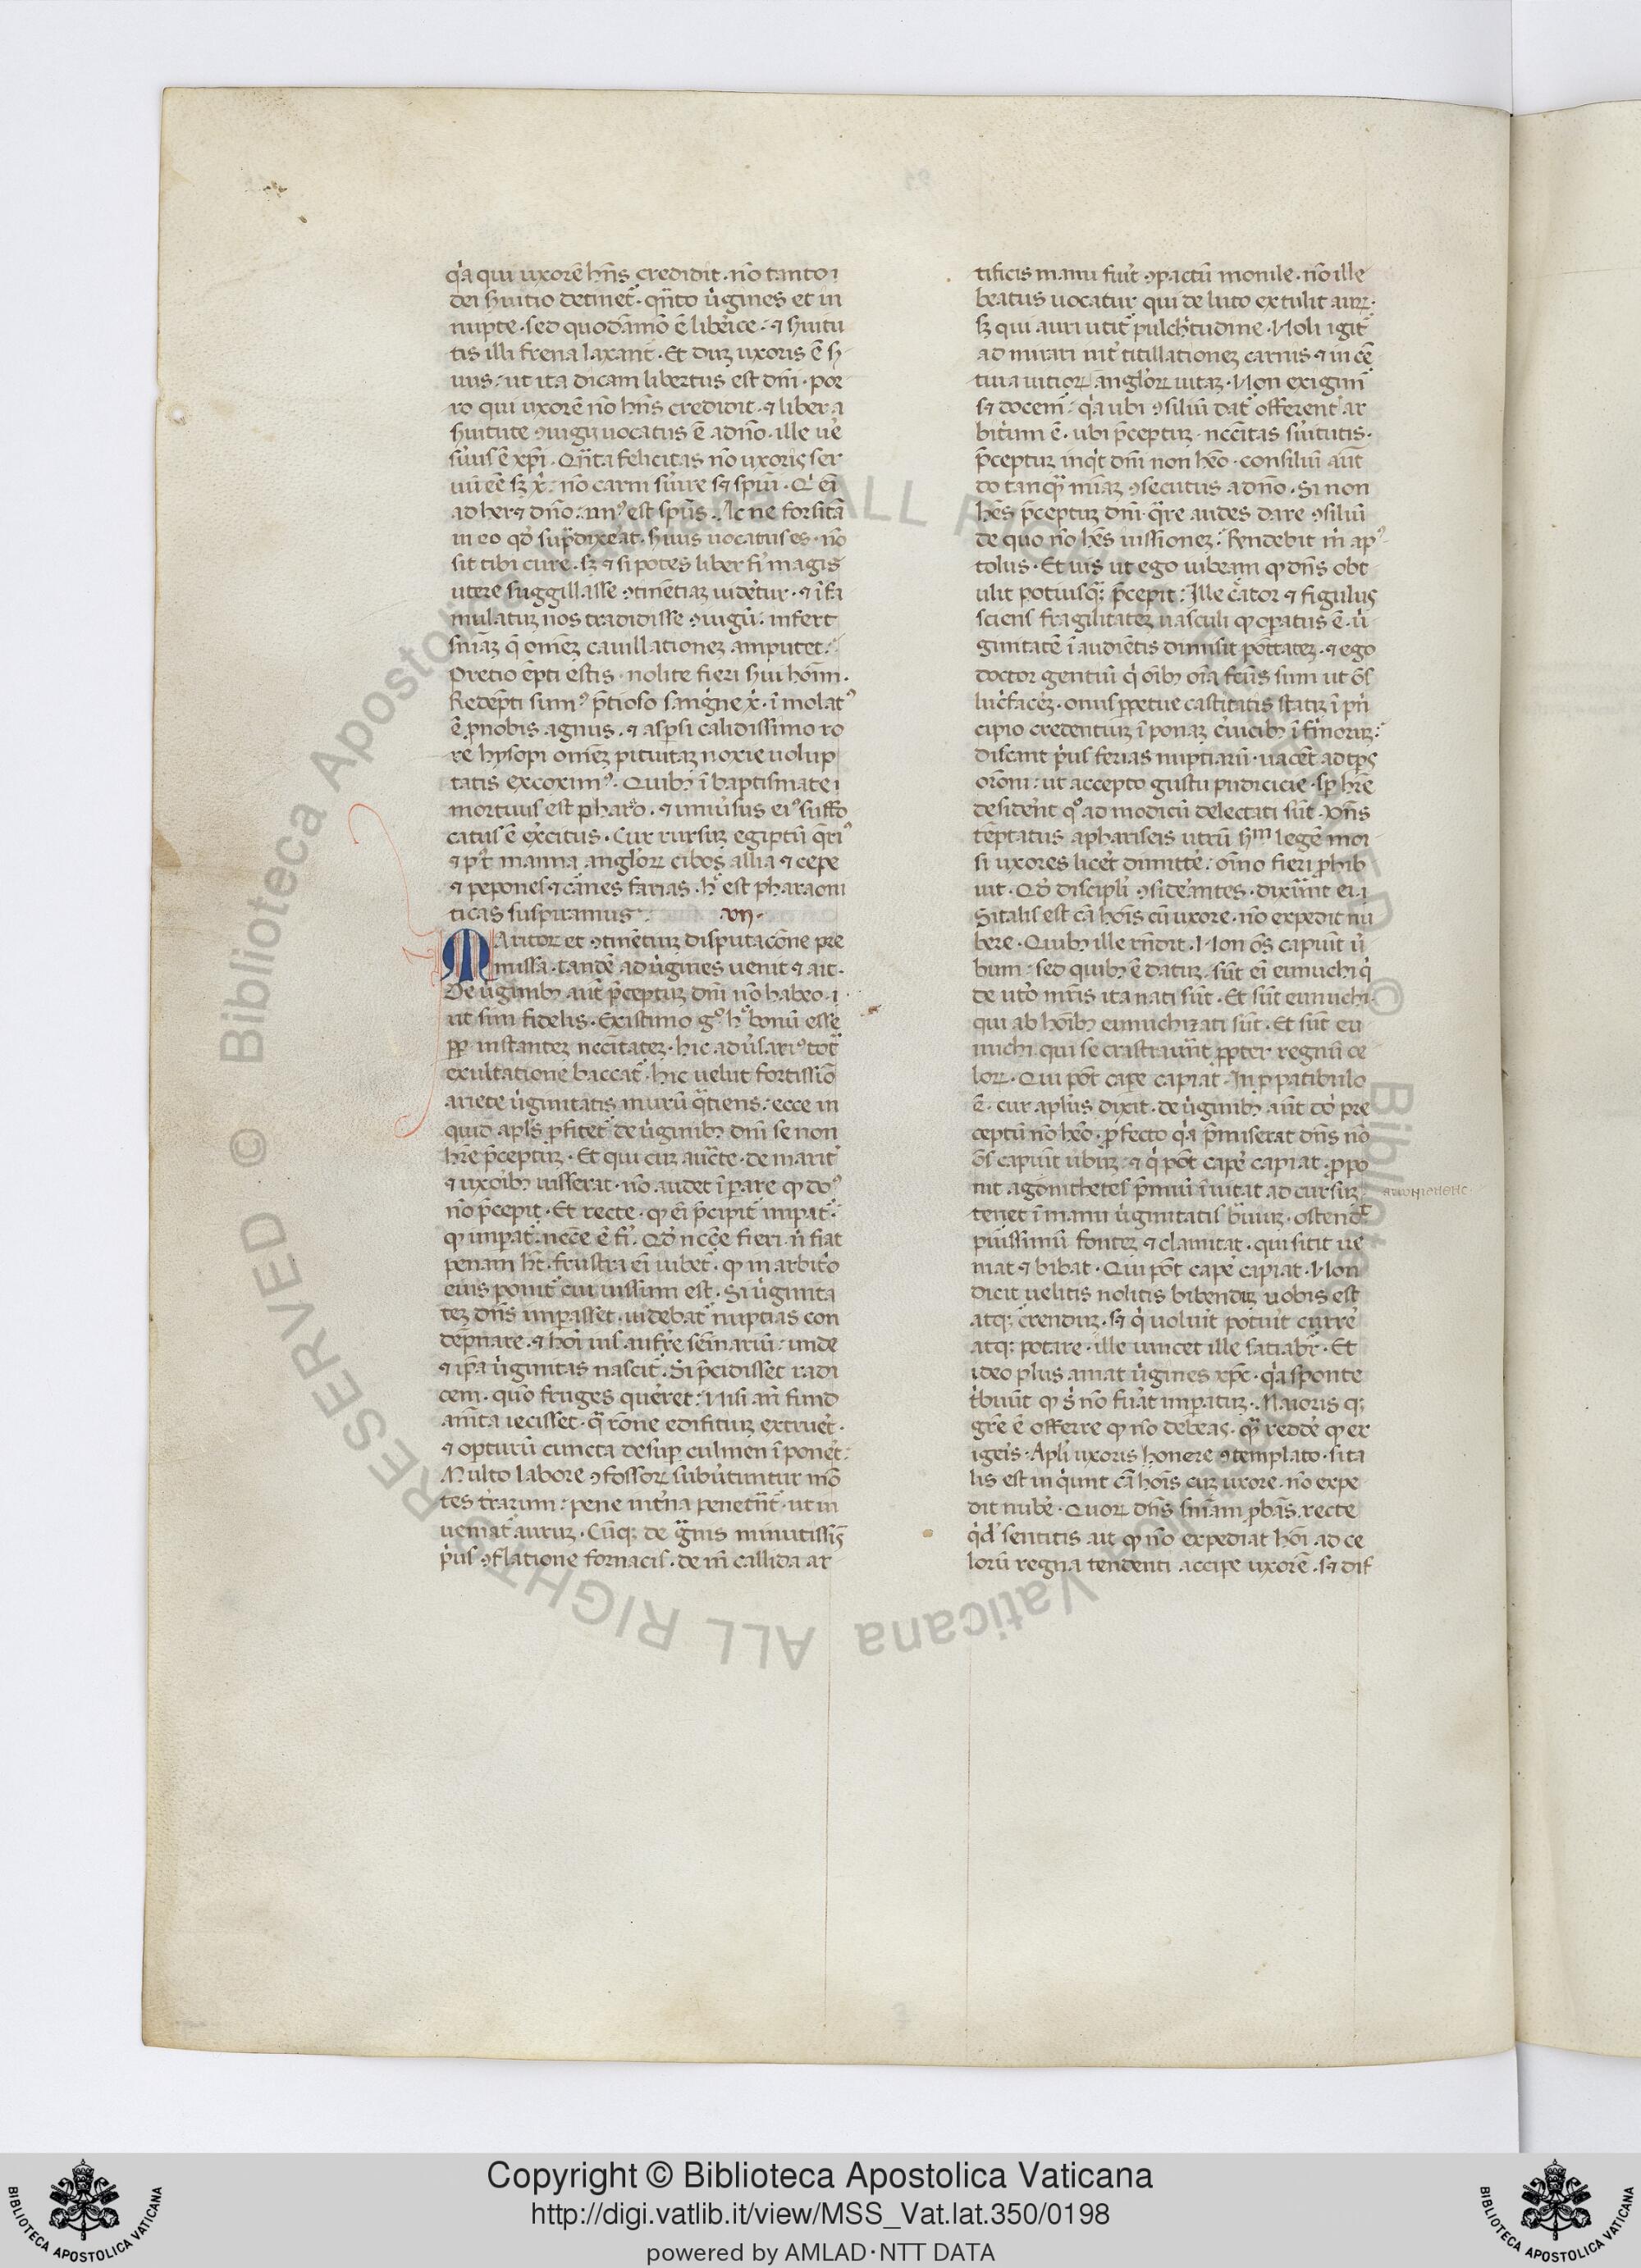 q̇a qui uxorē hn̄s credidit · nō tanto ı
dei ſ̄uitio detinet᷑ · qn̄to ûgines et in
nupte · sed quodāmō ē libeíce : ⁊ ſ̄uitu
tis illi frena laxant · Et duꝫ uxoris ē ſ̄
uus : ut ita dicam libertus est dn̄i · por
ro qui uxorē nō hn̄s credidit · ⁊ liber a
ſ̄uitute ꝯiugij uocatus ē a dn̄o · ille ue̓
ſuus ē xp̄i · Qn̄ta felicitas nō uxoris ser
uū eē sꝫ x̄ : nō carni ſuire sꝫ spūi · Q̇ ei̅
adheret dn̄o : un᾽ est spūs · Ac ne forsitā
in eo qd̓ supͣdixeāt · ſ̄uus uocatus es · nō
sit tibi cure · sꝫ ⁊ si potes liber fi᾽ magis
utere suggillasse ꝯtinētiaꝫ uidēt᷑ur · ⁊ ī fa
mulatuꝫ nos tradidisse ꝯiugū : infert
sn̄iaꝫ q̄ omēꝫ cauillationeꝫ amputet :
Pretio ēpti estis · nolite fieri ſ̄ui hoīm ·
Redēpti sum᾽ p̄tioso sang̓ne x̄ · īmolat᾽
ē ꝓnobis agnus · ⁊ asꝑsi calidissimo ro
re hysopi omēꝫ pituitaꝫ noxie uolup
tatis excoxim᾽ · Quibꝫ ī baptismate ı
mortuus est pharō · ⁊ uniūsus ei᾽ suffo
catus ē exe̓citus · Cur rursuꝫ egiptū q̄ri᾽
⁊ pͦt manna angl̓oꝝ cibos allia ⁊ cepe
⁊ pepones ⁊ cānes farias · h̊ est pharaoni
ticas suspiramus · VII ·
Maritoꝝ et ꝯtinētiuꝫ disputacōne pre
missa · tandē ad ûgines uenit ⁊ ait ·
De ûginibꝫ aūt p̄ceptuꝫ dn̄i nō habeo · ı
ut sim fidelis · Existimo g᾽ h̊ bonū esse
ꝓp̄ instanteꝫ nccītateꝫ · hic adûsari᾽ tot̄
exultatione baccat᷑ · hic uelut fortissiō
ariete ûginitatis murū q̄tiens : ecce in
quid apl̄s ꝓfitet᷑ de ûginibꝫ dn̄i se non
hr̄e p̄ceptuꝫ · Et qui cuꝫ auc̄te · de marit̄
⁊ uxoībꝫ iusserat · nō audet īꝑare ꝙ do᾽
nō p̄cepit · Et recte · ꝙ ei̅ p̄cipit᷑ imꝑat᷑ :
ꝙ imꝑat᷑ · necce ē fi᾽ · Qd̓ necce fieri · n̓ fiat
penam ht̄ · frustra ei̅ iubet᷑ · ꝙ in arbit̓o
eius ponit᷑ cui iussum est · Si ûginita
teꝫ dn̄s imꝑasset · uidebat᷑ nuptias con
dēpnare · ⁊ hoī uis aufr̄e sem̄inariū : unde
⁊ ip̄a ûginitas nascit᷑ · Si p̄cidisset radi
cem · quō fruges quēret : Nisi añ fund
amēta iecisset · q̄ rōne edifitiuꝫ extruet̄ ·
⁊ opturū cuncta desuꝑ culmen īponet̄ :
Multo labore ꝯfossoꝝ subûtuntur mō
tes t̓raruꝫ : pene int̓na penetn̄t · ut in
ueniat᷑ auruꝫ · Cūqꝫ de g̓nis minutissis̄
p̓us ꝯflatione fornacis · de ın̄ callida ar
tificis manu fu̓it ꝯpactū monile · nō ille
beatus uocatur qui de luto extulit auꝝ ·
sꝫ qui auri utit᷑ pulch̓tudine · Noli igit᷑
admirari int̓ titillationeꝫ carnis ⁊ incē
tiua uitioꝝ angl̓oꝝ uitaꝫ · Non exigim᷑
sꝫ docem᷑ · q̓a ubi ꝯsiliū dat᷑ offerent̓ ar
bit̓um ē · ubi p̄ceptuꝫ · nccītas ſūitutis ·
p̄ceptuꝫ inq̓t dn̄i non hēo · consiliū aūt
do tanq̄ mīaꝫ ꝯsecutus a dn̄o · Si non
hēs p̄ceptuꝫ dn̄i · q̄re audes dare ꝯsiliū
de quo nō hēs iussioneꝫ : Rendebit m̄ ap᾽
tolus · Et uis ut ego iubeam ꝙ dn̄s obt
ulit potiusqꝫ p̄cepit : Ille c̄ator ⁊ figulus
sciens fragilitateꝫ uasculi ꝙ oꝑatus ē · û
ginitatē ī audiētis dimisit pōtateꝫ · ⁊ ego
doctor gentiū q̓ oībꝫ oīa fcūs sum ut ōs
luc̓faceꝫ · onus ꝑpetue castitatis statiꝫ ī pn̄
cipio credentiuꝫ īponaꝫ ce̓uicibꝫ īfi̓moruꝫ :
discant p̓us ferias nuptiarū · uacēt ad tp̄s
orōni : ut accepto gustu pudicicie · sp̄ hr̄e
desident̓ q᾽ ad modicū delectati sūt · Dn̄s
tēptatus a phariseis utrū ẜᵐ legē moi
si uxores licet̄ dimitte̓ : oīno fieri ꝓhib
uit · Qd̓ discipl̓i ꝯsideāntes · dixūnt ei ı
Si talis est cā hoīs cū uxore · nō expedit nu
bere · Quibꝫ ille rn̄dit · Non ōs capiūt û
bum : sed quibꝫ ē datuꝫ · sūt ei̅ eunuchi q̓
de ut̓o mr̄is ita nati sūt · Et sūt eunuchi ·
qui ab hoībꝫ eunuchizati sūt · Et sūt eu
nuchi qui se castraūnt ꝓpter regnū ce
loꝝ · Qui pōt cape̓ capiat · In ꝓpatibulo
ē · cur apl̄us dixit · de ûginibꝫ aūt dō pre
ceptū nō hēo · ꝓfecto q̓a p̄miserat dn̄s nō
ōs capiūt ûbuꝫ : ⁊ q̓ pōt cape̓ capiat · ꝓpo
nit agonithetes p̄miū · īuitat ad cursuꝫ ·
tenet ī manu ûginitatis b̄uiuꝫ · ostendᵗ
piuissimū fonteꝫ ⁊ clamitat · qui sitit ue
niat ⁊ bibat · Qui pōt cape̓ capiat · Non
dicit uelitis nolitis bibenduꝫ uobis est
atqꝫ c̄renduꝫ · sꝫ q̓ uoluit̓ potuit̓ curre̓
atqꝫ potare · ille uincet ille satiabr̄ · Et
ideo plus amat ûgines xp̄c · q̓a sponte
t̓buūt ꝙ s̓ nō fuāt imꝑatuꝫ · Maioris qꝫ
gr̄e ē offerre ꝙ nō debeas · q̄ redde̓ ꝙ ex
igeis · Apl̓i uxoris honere ꝯtemplato · si ta
lis est inq̓unt cā hoīs cuꝫ uxore · nō expe
dit nube̓ · Quoꝝ dn̄s sn̄iam ꝓbās · recte
q̓d᾽ sentitis ait ꝙ nō expediat hoī ad ce
lorū regna tendenti accipe uxorē · sꝫ dif
Copyright © Biblioteca Apostolica Vaticana
http://digi.vatlib.it/view/MSS_Vat.lat.350/0198
powered by AMLAD·NTT DATA
BIBLIOTECA APOSTOLICA VATICANA
BIBLIOTECA APOSTOLICA VATICANA
© Biblioteca Apostolica Vaticana ALL RIGHTS RESERVED © Biblioteca Apostolica Vaticana ALL RIGHTS RESERVED